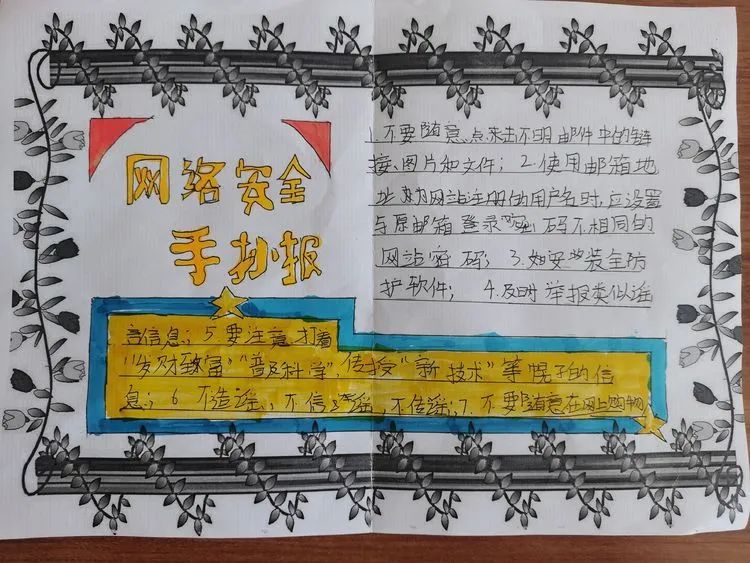 网络安全
手抄报
1.不要随意点击不明邮件中的链
接、图片和文件；2.使用邮箱地
址为网站注册的用户名时，应设置
与原邮箱登录密码不相同的
网站密码；3.如安装全防
护软件；4.及时举报类似谣
言信息；5.要注意打着
“发财致富”“普及科学”，传授“新技术”等幌子的信
息；6.不造谣，不信谣，不传谣；7.不要随意在网上购物